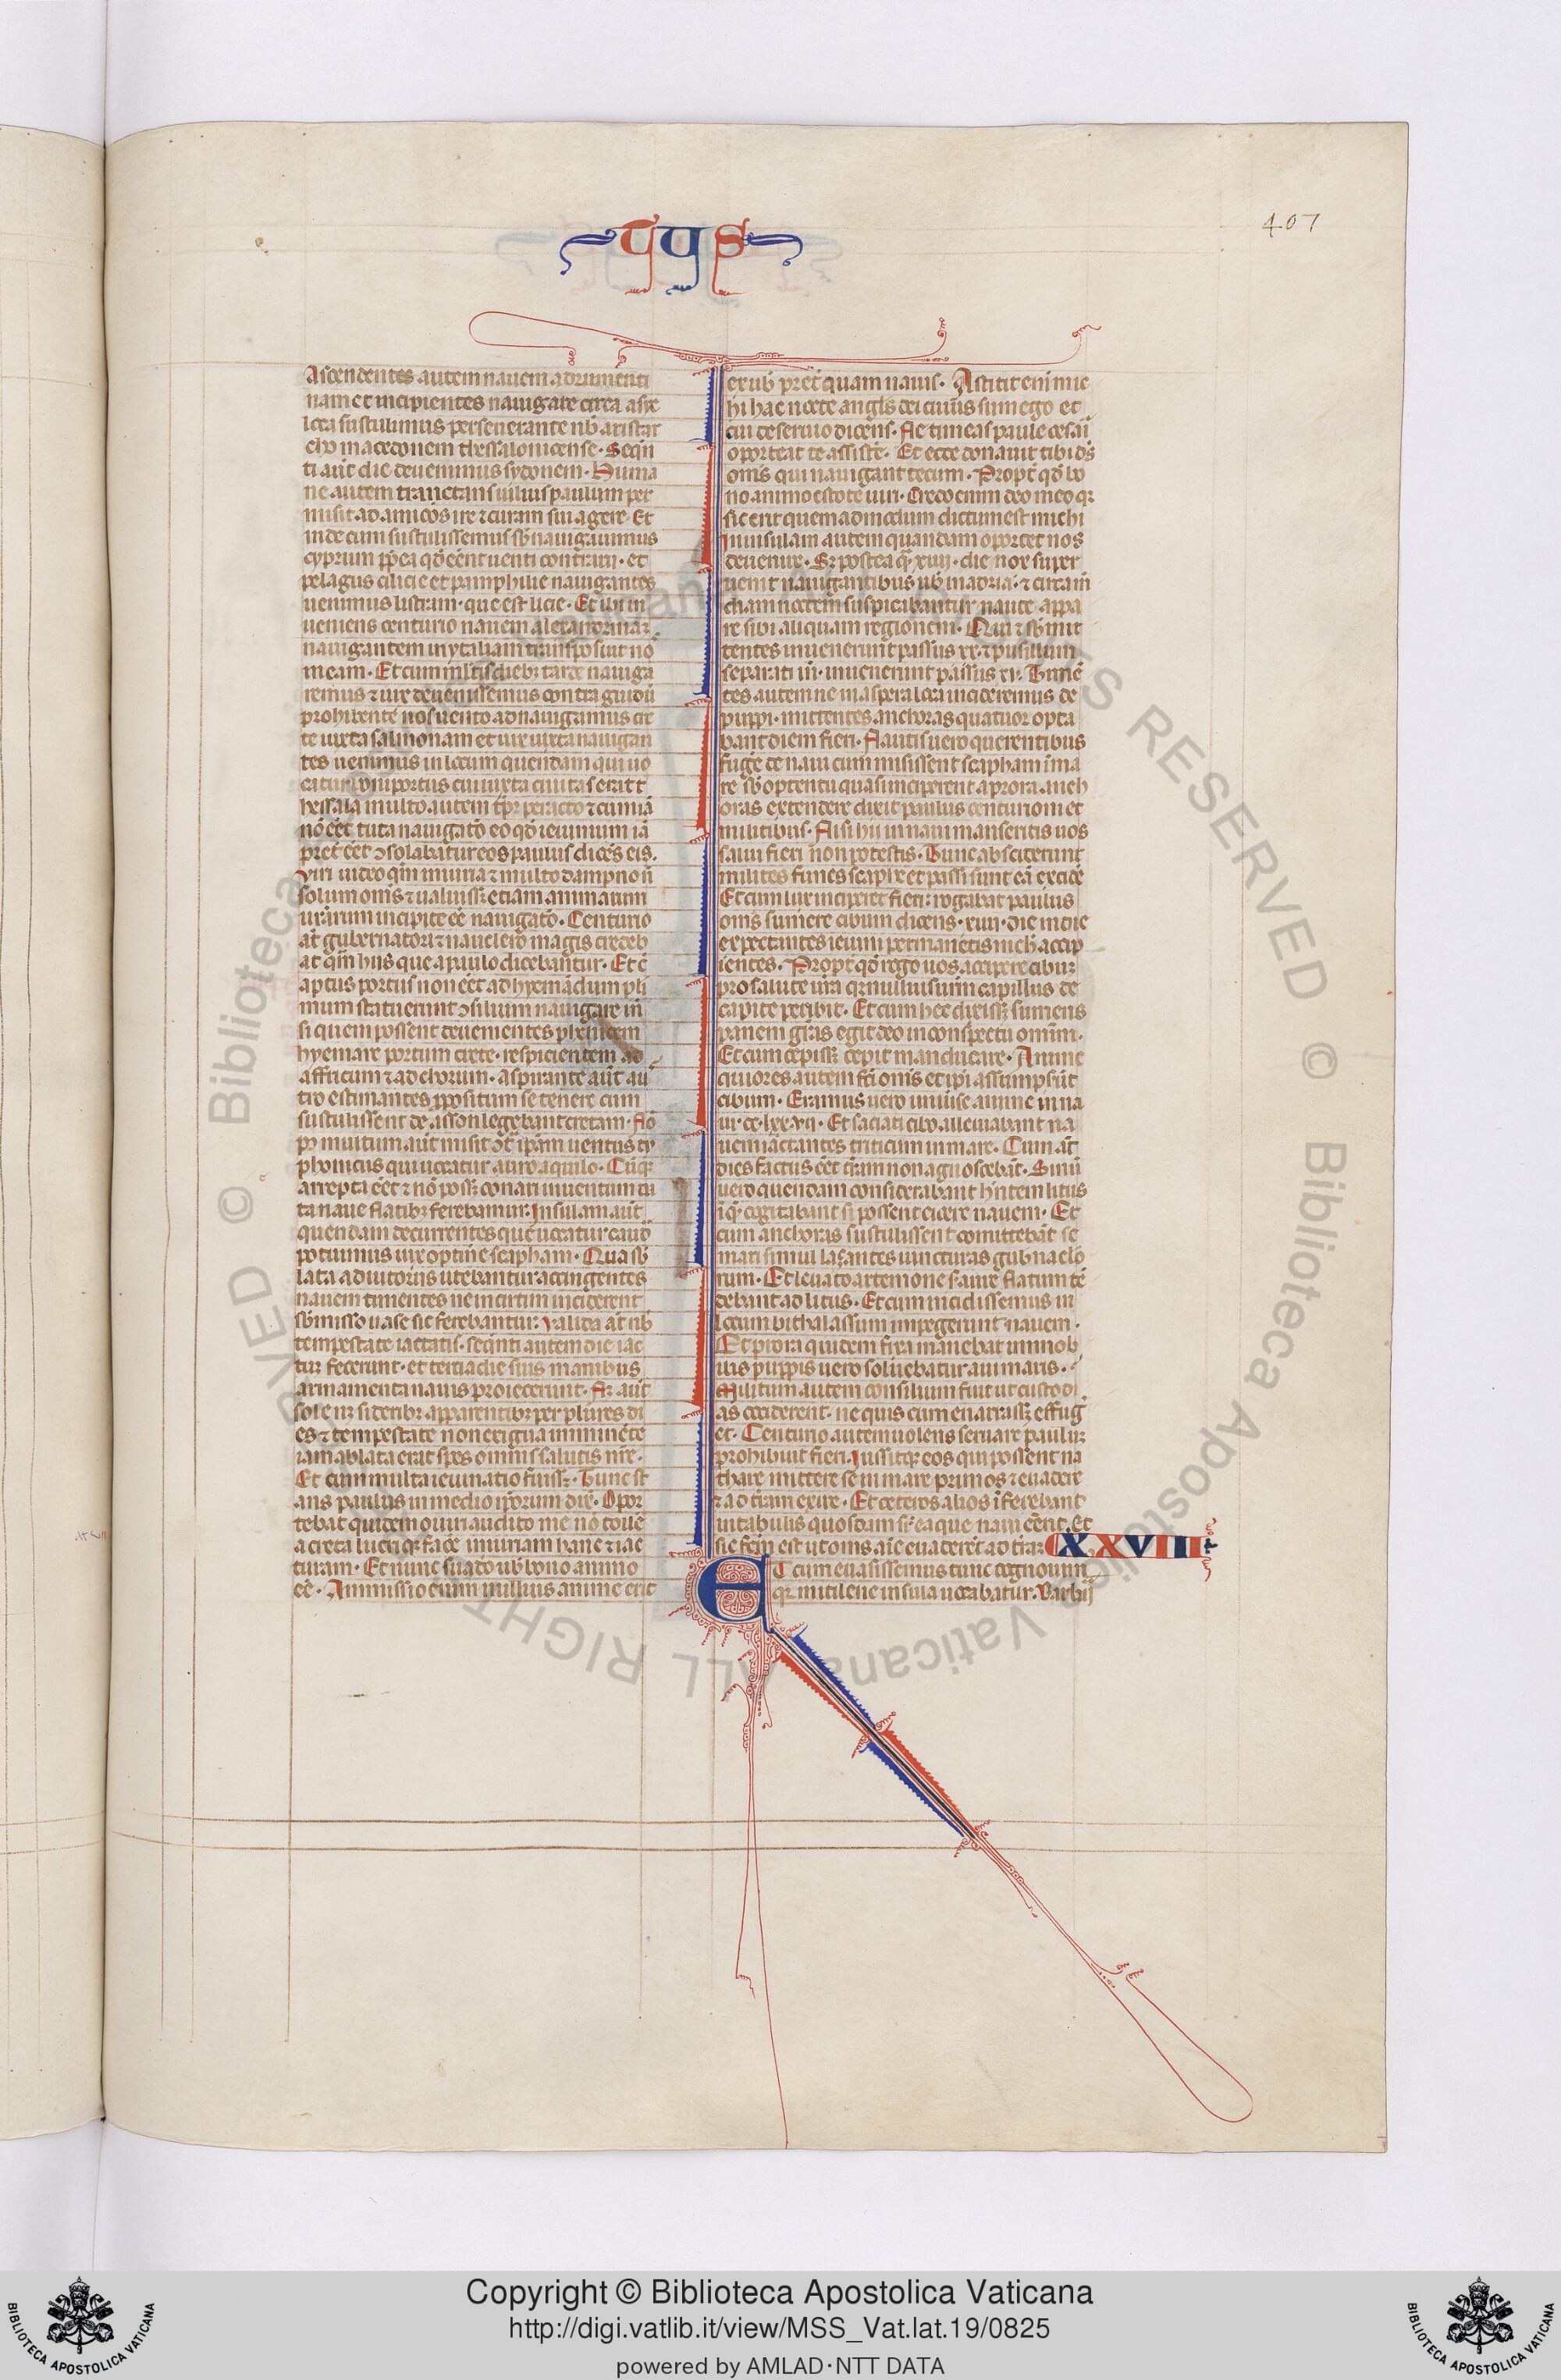 407
ascendentes autem nauem adrumeti
nam et incipientes nauigare circa asye
loca sustulimus perseuerante nob̄ aristar
cho macedonem thessalonicense. Seqū
ti aūt die deuenimus sydonem. Huma
ne autem tranctans uilius paulum per
misit ad amicos ire ⁊ curam sui agere. Et
inde cum sustulissemus sb̄ nauigauimus
cyprum pp̄ea qd̄ cēnt uenti contrarij. et
pelagus cilicie et pamphilie nauigantes
uenimus listram. que est licie. Et ibi in
ueniens centurio nauem alexandrinā
nauigantem in ytaliam transposuit no
meam. Et cum multis dieb; tarde nauiga
remus ⁊ uix deuenissemus contra guidū
prohibente nos uento adnauigamus cre
te iuxta salmonam et uix iuxta nauigan
tes uenimus in locum quendam qui uo
catur boni portus cui iuxta ciuitas erat t
hessala multo autem tp̄r peracto ⁊ cum iā
nō eēt tuta nauigatō eo qd̄ ieiunium iā
preīt eēt ↄsolabatur eos paulus dicēs eis.
Viri uideo qm̄ iniuria ⁊ multo dampno n̄
solum onīs ⁊ ualuiss; etiam animarum
urārum incipite eē nauigatō. Centurio
at̄ gubernatori ⁊ nauclerio magis credeb
at qm̄ hijs que a paulo dicebantur. Et c̄
aptus portus non eēt ad hyemādum plī
mum statuerunt ↄsilium nauigare in̄
si quem possent deuenientes phenicem
hyemare portum crete. respicientem ad
affricum ⁊ ad chorum. aspirante aūt au
tro estimantes p̄positum se tenere cum
sustulissent de asson legebant cretam. Nō
p⁹ multum aūt misit ↄt̄ ip̄am uentus ty
phonicus qui uocatur auro aquilo. Cūq;
arrepta eēt ⁊ nō poss; conari inuentum da
ta naue flatib; ferebamur. Insulam aūt
quendam decurrentes que uocatur caud
potuimus uix optine scapham. Qua sb̄
lata adiutorijs utebantur accingentes
nauem timentes ne in cirtim inciderent
sb̄misso uase sic ferebantur. Valida at̄ nb̄
tempestate iactatis. seqn̄ti autem die iac
tur fecerunt. et tertia die suis manibus
armamenta nauis proiecerunt. N; aūt
sole n; siderib; apparentib; per plures di
es ⁊ tempestate non exigua imminēte
iam ablata erat spes omnis salutis nr̄e.
Et cum multa ieiunatio fuiss;. Tunc st
ans paulus in medio ip̄orum dix̄. Opor
tebat quidem o uiri audito me nō tolle
a creta lucriq; fac̄e iniuriam hanc ⁊ iac
turam. Et nunc suadō uob̄ bono animo
eē. Amissio enim nullius anime erit
ex uob̄ pret̄ quam nauis. Astitit eni mic
hi hac nocte angl̄s dei cuius sum ego et
cui deseruio dicens. Ne timeas paule cesaī
oporteat te assistē. Et ecce donauit tibi ds̄
omīs qui nauigant tecum. Propt̄ qd̄ bo
no animo estote uiri. Credo enim deo meo q;
sic erit quemadmodum dictum est michi
in insulam autem quandam oportet nos
deuenire. S; postea q̄ xiiij. die nox super
uenit nauigantibus nb̄ in adria. ⁊ circa m̄
cham noctem suspicabantur naute appa
re sibi aliquam regionem. Qui ⁊ sb̄mit
tentes inuenerunt passus xx. ⁊ pusillum
separati in̄. inuenerunt passus xv. Timē
tes autem ne in aspera loca incideremus de
puppi. mittentes anchoras quatuor opta
bant diem fieri. Nautis uero querentibus
fuge de naui cum misissent scapham ī ma
re sb̄ optentu quasi inciperent a prora anch
oras extendere dixit paulus centurioni et
militibus. Nisi hij in naui manseritis uos
salui fieri non potestis. Tunc absciderunt
milites funes scaphe et passi sunt eā excidē
Et cum lux inciperet fieri: rogabat paulus
omīs sumere cibum dicens. xiiij. die in die
expectantes ieiuni permanetis nich̄ accip
ientes. Propt̄ qd̄ rogo uos accipere cibu;
pro salute ur̄a q; nullius uīm capillus de
capite peribit. Et cum hec dixiss; sumens
panem gr̄as egit deo in conspectu omīm.
Et cum cepiss; cepit manducare. Anime
quiores autem fc̄i omīs et ip̄i assumpsūt
cibum. Eramus uero uniuīse anime in na
ui. cc. lxxvij. Et saciati cibo alleuiabant na
uem iactantes triticum in mare. Cum at̄
dies factus eēt tr̄am non agnoscebāt. Sinū
uero quendam considerabant hn̄tem litus
ī q̄ cogitabant si possent eicere nauem. Et
cum anchoras sustulissent cōmittebāt se
mari simul laxantes iuncturas gubnaclo
rum. Et leuato artemone s; aure flatum tē
debant ad litus. Et cum incidissemus in
locum bithalassum impegerunt nauem.
Et prora quidem fixa manebat immob
ilis puppis uero soluebatur a ui maris.
Militum autem consilium fuit ut custodi
as occiderent. ne quis cum enatass; effug
et. Centurio autem uolens seruare paulu;
prohibuit fieri. Iussitq; eos qui possent na
thare mittere se in mare primos ⁊ euadere
⁊ ad tr̄am exire. Et ceteros alios ī ferebant
in tabulis quosdam s; ea que naui eēnt. Et
sic fc̄m est ut omīs aīe euaderēt ad trā;
XXVIII
ET cum euasissemus tunc cognouim⁹
q; mitilene insula uocabatur. Barbij
Copyright © Biblioteca Apostolica Vaticana
http://digi.vatlib.it/view/MSS_Vat.lat.19/0825
powered by AMLAD·NTT DATA
BIBLIOTECA APOSTOLICA VATICANA
BIBLIOTECA APOSTOLICA VATICANA